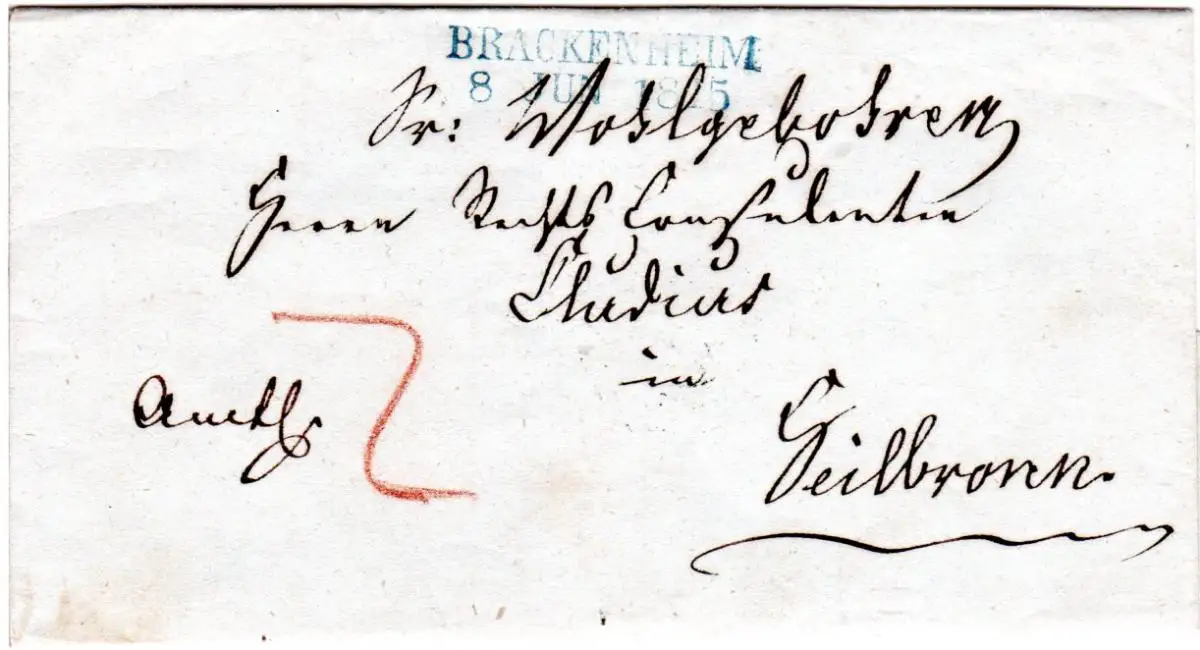 BRACKENHEIM
8 JUN 18 5
Sr: Wohlgebohren
Herrn Rechts Consulenten
Cludius
in
Amtl.
2
Heilbronn.